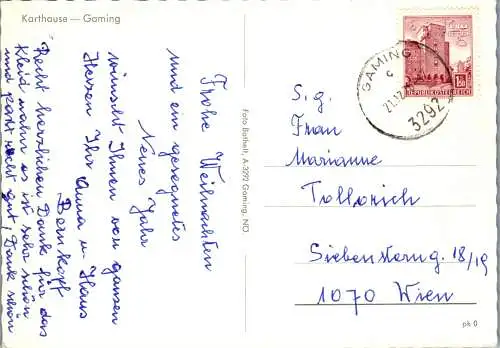 Karthause — Gaming
Frohe Weihnachten
und ein gesegnetes
Neues Jahr
wünscht Ihnen von ganzen
Herzen Ihr Anna u Hans
Bornkopf
Recht herzlichen Dank für das
Kleid wahr es ist sehr schön
und paßt recht gut, Dank schön
Foto Bartelt, A-3292 Gaming, NÖ
GAMING
c
3292
REPUBLIK ÖSTERREICH
S. g.
Frau
Marianne
Tollorich
Siebensterng. 18/19
1070 Wien
pk 0